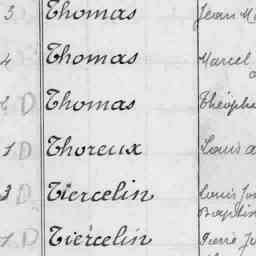 3 Thomas Jean M
4 Thomas Marcel
D Thomas Théophi
1 D Thoreux Louis a
3 D Tiercelin Louis Jo
Baptis
1 D Tiercelin Pierre Ju